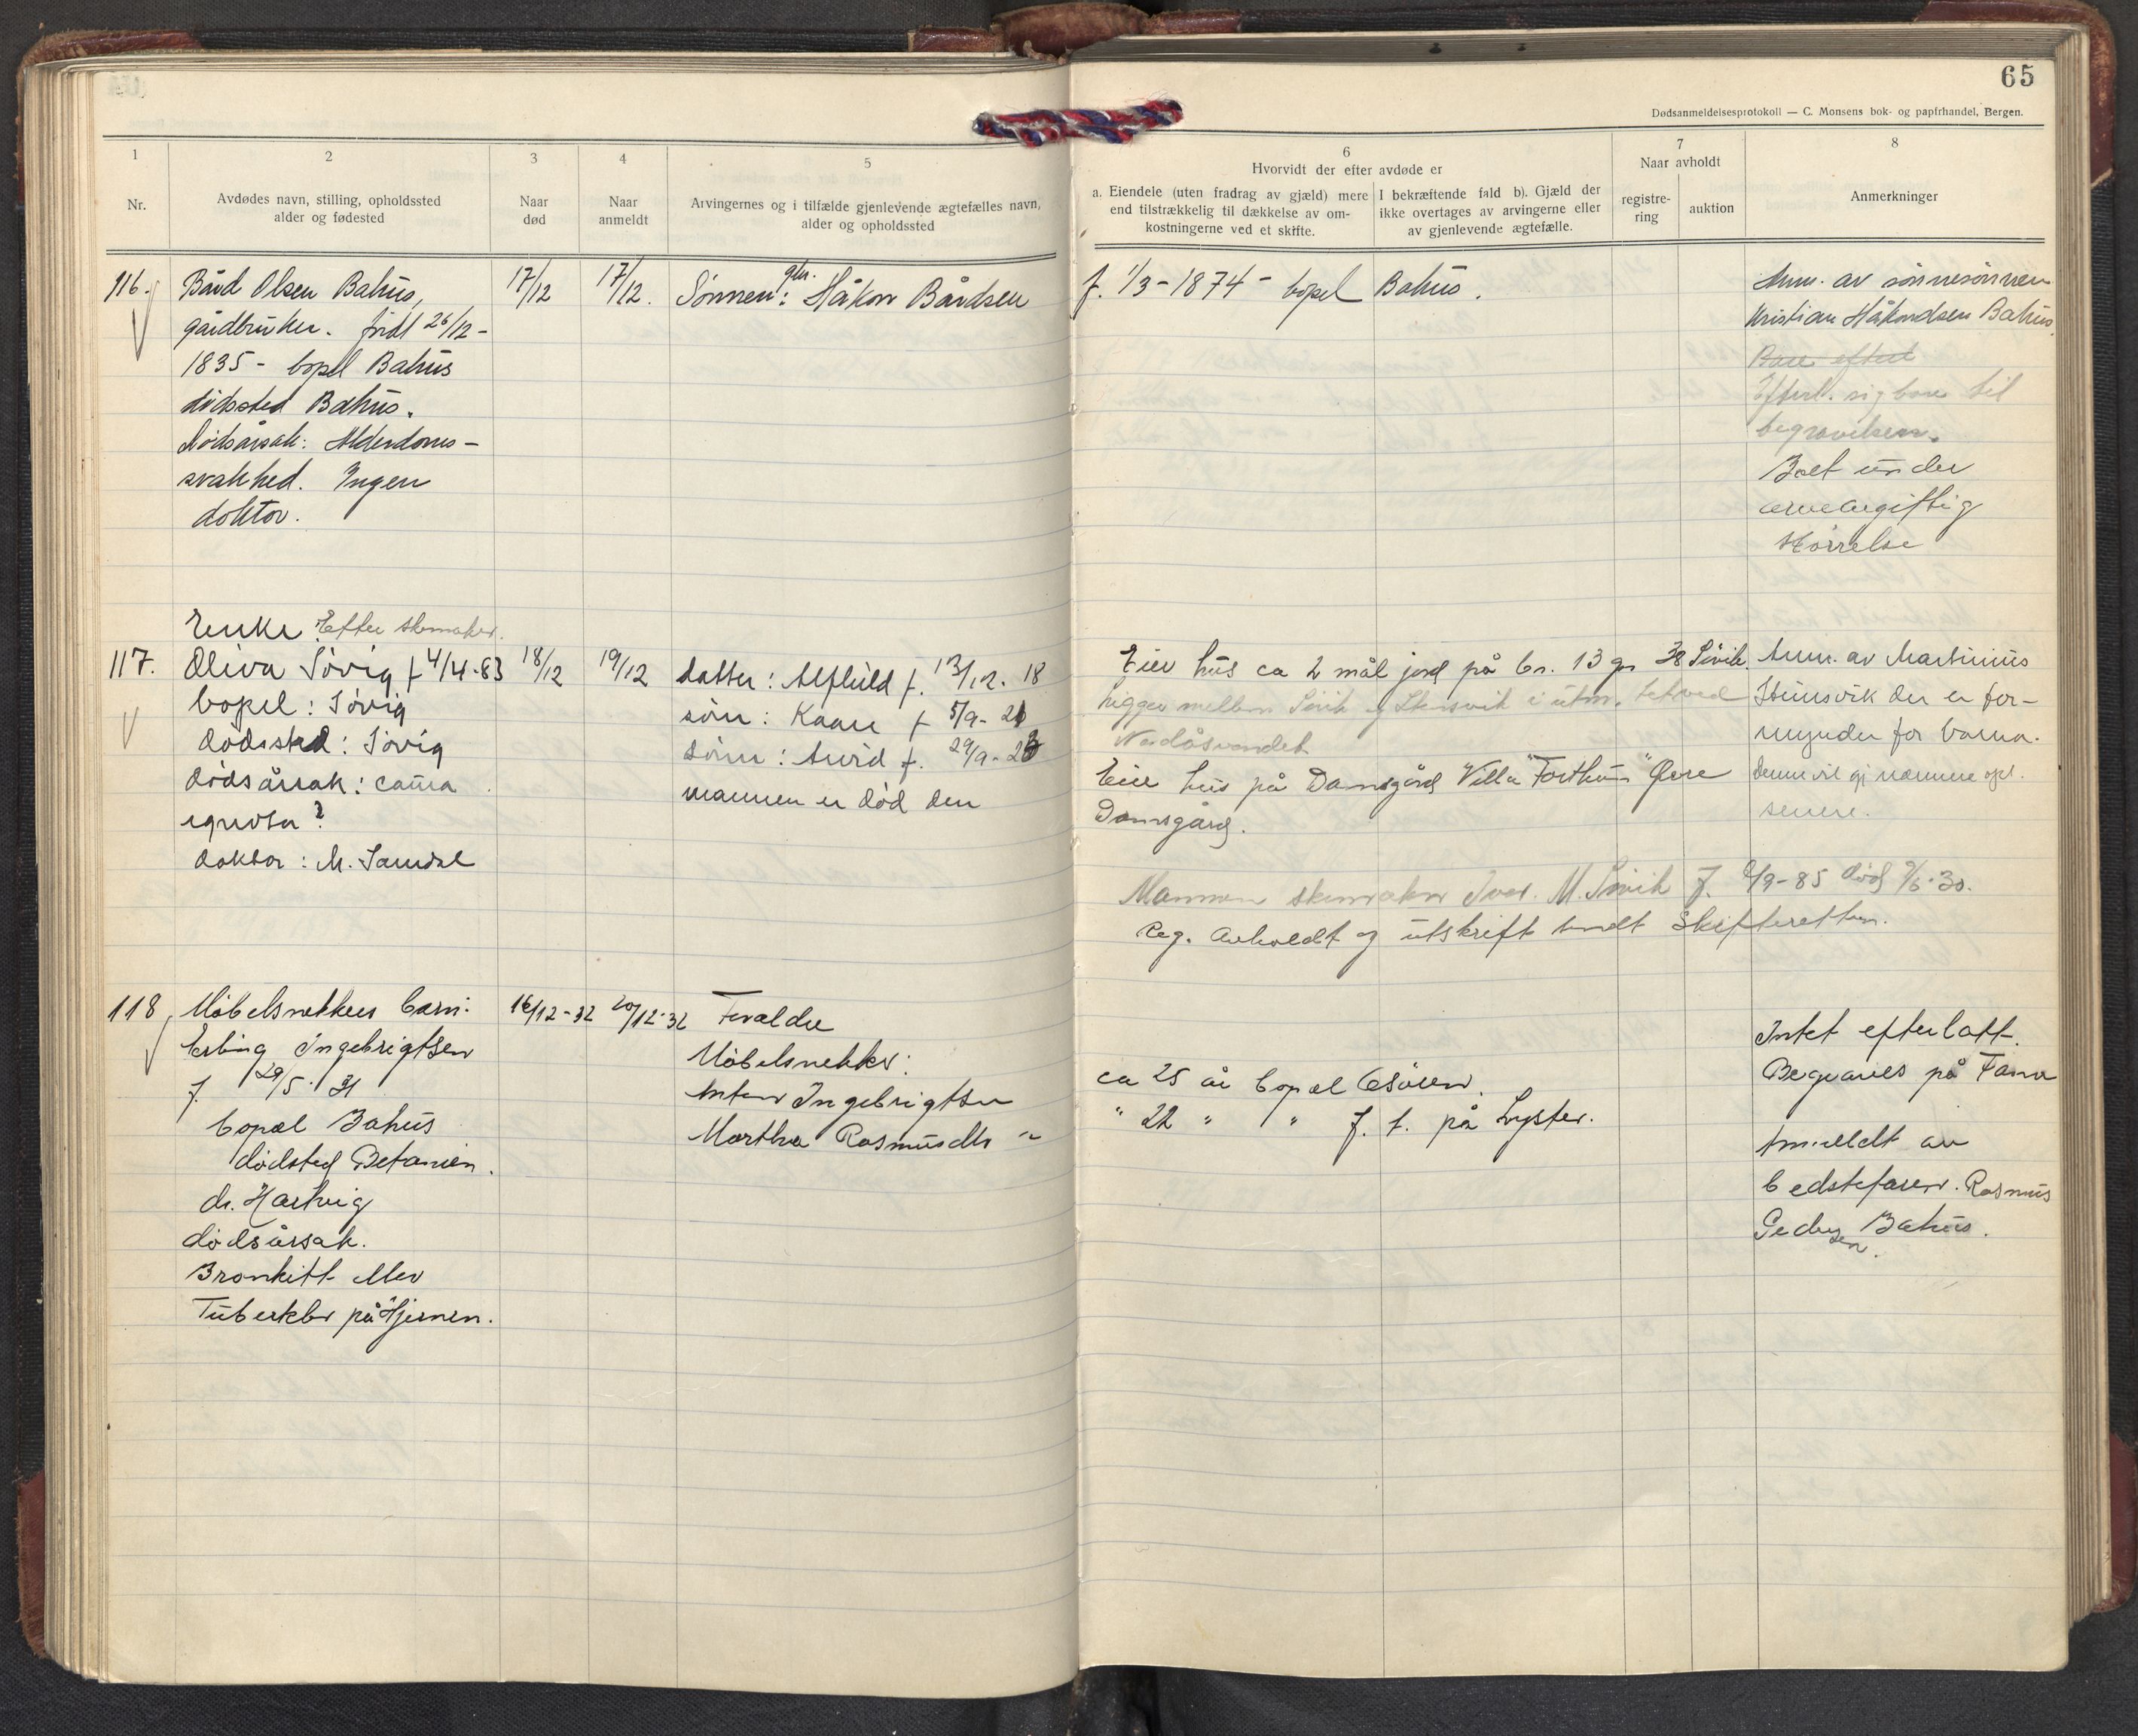 65
Dødsanmeldelsesprotokoll — C. Monsens bok- og papirhandel, Bergen.
1
Nr.
2
Avdødes navn, stilling, opholdssted
alder og fødested
3
Naar
død
4
Naar
anmeldt
5
Arvingernes og i tilfælde gjenlevende ægtefælles navn,
alder og opholdssted
6
Hvorvidt der efter avdøde er
a. Eiendele (uten fradrag av gjæld) mere
end tilstrækkelig til dækkelse av om-
kostningerne ved et skifte.
I bekræftende fald b). Gjæld der
ikke overtages av arvingerne eller
av gjenlevende ægtefælle.
7
Naar avholdt
registre-
ring
auktion
8
Anmerkninger
116.
Bård Olsen Bahus,
gårdbruker. født 26/12-
1835 - bopel Bahus
dødssted Bahus.
Dødsårsak: Alderdoms-
svakhed. Ingen
doktor.
17/12
17/12.
Sønnen: Håkon Bårdsen
f. 1/3-1874 - bopel Bahus.
Anm. av sønnesønnen
Kristian Håkondsen Bahus
Bare efterl
Efterl. sig bare til
begravelsen.
Boet under
arveavgiftig
størrelse
117.
Enke Efter skomaker.
Oliva Søvig f 4/4-83
bopel: Søvig
dødssted: Søvig
dødsårsak:
doktor: M.
18/12
19/12
datter: Alfhild f. 13/12-18
søn: Kaare f 5/9-21
søn: Arvid f. 29/9-23
mannen er død den
Eier hus ca 2 mål jord på bn. 13 gn 38 Søvik.
ligger mellem Søvik og Steinsvik i utm. tet ved
Nordåsvandet
Eier hus på Damsgård Villa "Forthun" Øvre
Damsgård.
Mannen skomaker Iver. M. Søvik f. /9-85 død 9/6-30.
Reg. avholdt og utskrift sendt Skifteretten.
Anm. av Martinius
Steinsvik der er for-
mynder for barna.
Denne vil gi nærmere opl.
senere.
118
Møbelsnekkers barn:
Erling Ingebrigtsen
f. 29/5 31
bopæl Bahus
dødsted Betanien.
dr. Hartvig
dødsårsak.
Bronkitt eller
Tuberkler på Hjernen.
16/12-32
20/12-32
Foreldre
Møbelsnekker:
Anton Ingebrigtsen
Martha Rasmusdtr "
ca 25 år bopæl Osøren.
" 22 " " f. t. på Lyster.
Intet efterlatt.
Begraves på Fana
Anmeldt av
bedstefaren. Rasmus
Pedersen Bahus.